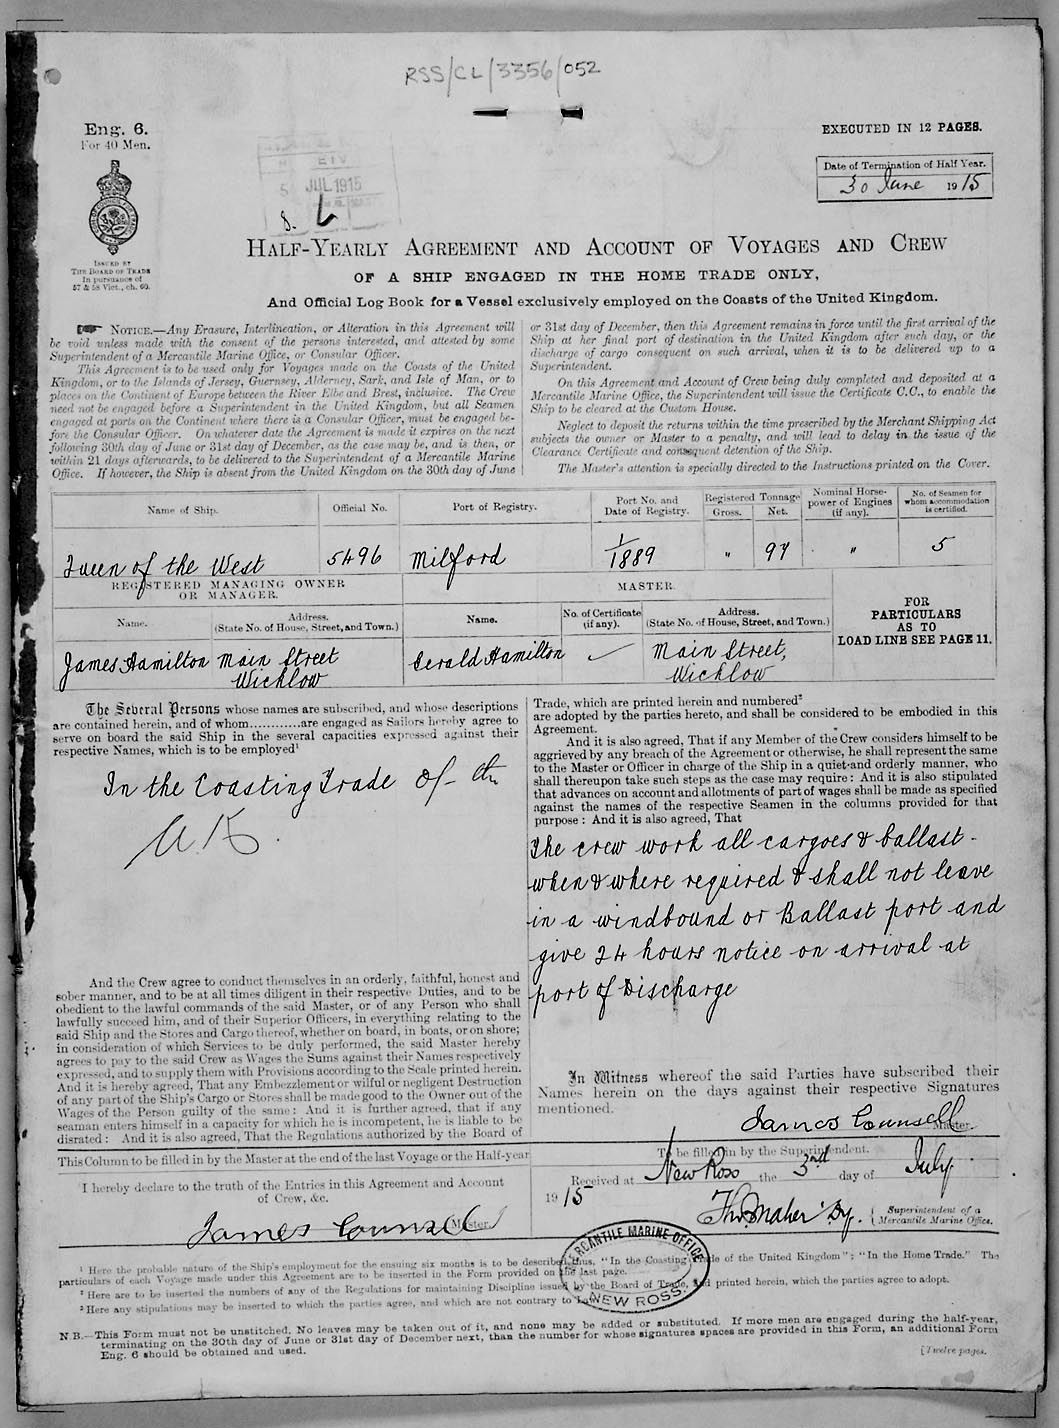 RSS/CL/3356/052
Eng. 6.
For 40 Men.
EXECUTED IN 12 PAGES.
Date of Termination of Half Year.
30 June 1915
5 JUL 1915
8.
ISSUED BY
THE BOARD OF TRADE
In pursuance of
57 & 58 Vict., ch. 60.
HALF-YEARLY AGREEMENT AND ACCOUNT OF VOYAGES AND CREW
OF A SHIP ENGAGED IN THE HOME TRADE ONLY,
And Official Log Book for a Vessel exclusively employed on the Coasts of the United Kingdom.
NOTICE.—Any Erasure, Interlineation, or Alteration in this Agreement will
be void unless made with the consent of the persons interested, and attested by some
Superintendent of a Mercantile Marine Office, or Consular Officer.
This Agreement is to be used only for Voyages made on the Coasts of the United
Kingdom, or to the Islands of Jersey, Guernsey, Alderney, Sark, and Isle of Man, or to
places on the Continent of Europe between the River Elbe and Brest, inclusive. The Crew
need not be engaged before a Superintendent in the United Kingdom, but all Seamen
engaged at ports on the Continent where there is a Consular Officer, must be engaged be-
fore the Consular Officer. On whatever date the Agreement is made it expires on the next
following 30th day of June or 31st day of December, as the case may be, and is then, or
within 21 days afterwards, to be delivered to the Superintendent of a Mercantile Marine
Office. If however, the Ship is absent from the United Kingdom on the 30th day of June
or 31st day of December, then this Agreement remains in force until the first arrival of the
Ship at her final port of destination in the United Kingdom after such day, or the
discharge of cargo consequent on such arrival, when it is to be delivered up to a
Superintendent.
On this Agreement and Account of Crew being duly completed and deposited at a
Mercantile Marine Office, the Superintendent will issue the Certificate C.C., to enable the
Ship to be cleared at the Custom House.
Neglect to deposit the returns within the time prescribed by the Merchant Shipping Act
subjects the owner or Master to a penalty, and will lead to delay in the issue of the
Clearance Certificate and consequent detention of the Ship.
The Master's attention is specially directed to the Instructions printed on the Cover.
Name of Ship. Official No. Port of Registry. Port No. and Date of Registry. Registered Tonnage Gross. Net. Nominal Horse-power of Engines (if any). No. of Seamen for whom accommodation is certified.
Queen of the West 5496 Milford 1/1889 " 97 " 5
REGISTERED MANAGING OWNER
OR MANAGER.
MASTER.
Name. Address. (State No. of House, Street, and Town.) Name. No. of Certificate (if any). Address. (State No. of House, Street, and Town.)
FOR
PARTICULARS
AS TO
LOAD LINE SEE PAGE 11.
James Hamilton Main Street Wicklow Gerald Hamilton Main Street, Wicklow
The Several Persons whose names are subscribed, and whose descriptions
are contained herein, and of whom............are engaged as Sailors hereby agree to
serve on board the said Ship in the several capacities expressed against their
respective Names, which is to be employed¹
In the Coasting Trade of the
U.K.
And the Crew agree to conduct themselves in an orderly, faithful, honest and
sober manner, and to be at all times diligent in their respective Duties, and to be
obedient to the lawful commands of the said Master, or of any Person who shall
lawfully succeed him, and of their Superior Officers, in everything relating to the
said Ship and the Stores and Cargo thereof, whether on board, in boats, or on shore;
in consideration of which Services to be duly performed, the said Master hereby
agrees to pay to the said Crew as Wages the Sums against their Names respectively
expressed, and to supply them with Provisions according to the Scale printed herein.
And it is hereby agreed, That any Embezzlement or wilful or negligent Destruction
of any part of the Ship's Cargo or Stores shall be made good to the Owner out of the
Wages of the Person guilty of the same: And it is further agreed, that if any
seaman enters himself in a capacity for which he is incompetent, he is liable to be
disrated: And it is also agreed, That the Regulations authorized by the Board of
Trade, which are printed herein and numbered²
are adopted by the parties hereto, and shall be considered to be embodied in this
Agreement.
And it is also agreed, That if any Member of the Crew considers himself to be
aggrieved by any breach of the Agreement or otherwise, he shall represent the same
to the Master or Officer in charge of the Ship in a quiet and orderly manner, who
shall thereupon take such steps as the case may require: And it is also stipulated
that advances on account and allotments of part of wages shall be made as specified
against the names of the respective Seamen in the columns provided for that
purpose: And it is also agreed, That
The crew work all cargoes & ballast
when & where required & shall not leave
in a windbound or Ballast port and
give 24 hours notice on arrival at
port of Discharge
In Witness whereof the said Parties have subscribed their
Names herein on the days against their respective Signatures
mentioned.
James Counsell Master.
This Column to be filled in by the Master at the end of the last Voyage or the Half-year
I hereby declare to the truth of the Entries in this Agreement and Account
of Crew, &c.
James Counsell Master
To be filled in by the Superintendent.
Received at New Ross the 3rd day of July
1915
Thos Maher Dy. Superintendent of a Mercantile Marine Office.
MERCANTILE MARINE OFFICE
NEW ROSS.
¹ Here the probable nature of the Ship's employment for the ensuing six months is to be described thus, "In the Coasting Trade of the United Kingdom"; "In the Home Trade." The
particulars of each Voyage made under this Agreement are to be inserted in the Form provided on the last page.
² Here are to be inserted the numbers of any of the Regulations for maintaining Discipline issued by the Board of Trade, and printed herein, which the parties agree to adopt.
³ Here any stipulations may be inserted to which the parties agree, and which are not contrary to Law.
N.B.—This Form must not be unstitched. No leaves may be taken out of it, and none may be added or substituted. If more men are engaged during the half-year,
terminating on the 30th day of June or 31st day of December next, than the number for whose signatures spaces are provided in this Form, an additional Form
Eng. 6 should be obtained and used.
[Twelve pages.